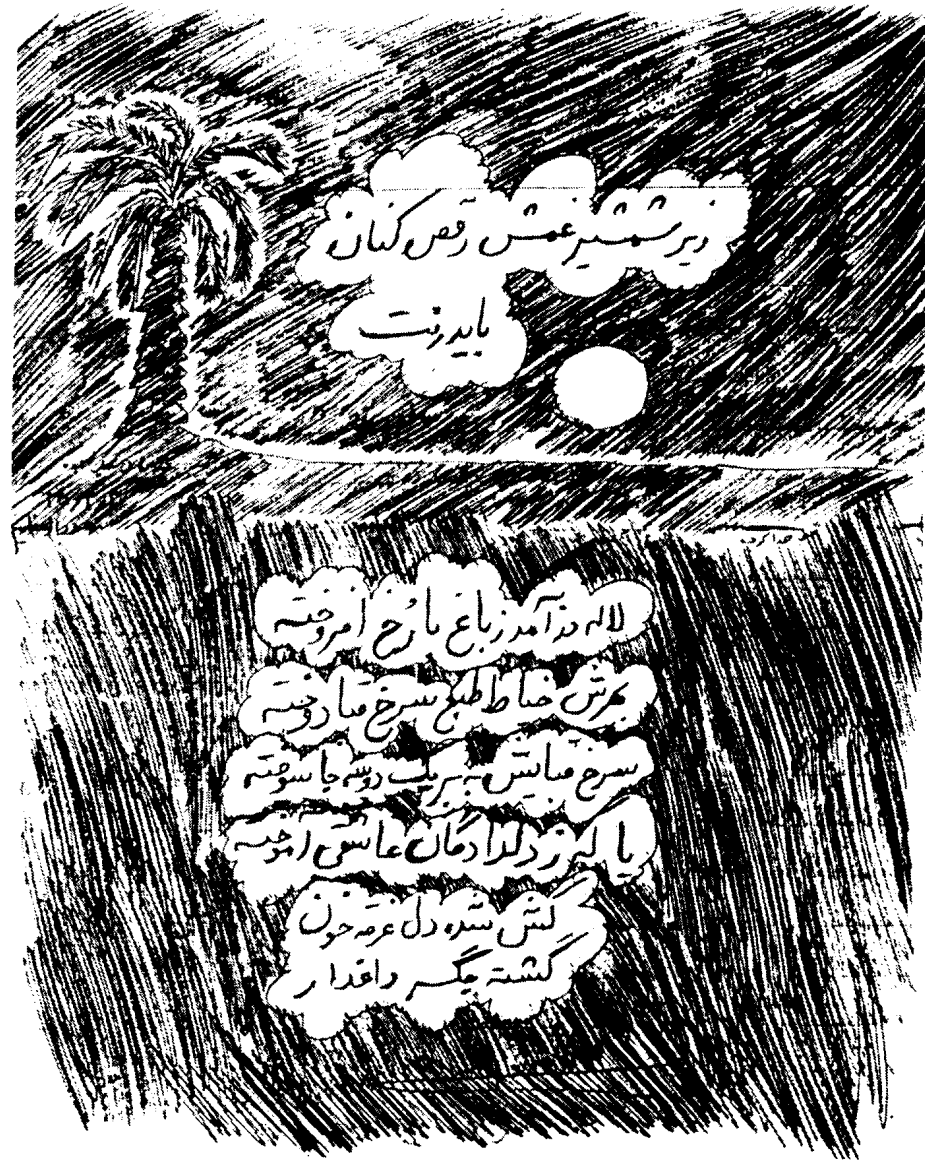 زیر شمشیر غمش رقص کنان
باید رفت
لاله در آمد ز باغ با رخ افروخته
بهرش خیاط طبع سرخ قبا دوخته
سرخ قبایش به بر یک دو سه جا سوخته
یا که ز دلدادگان عاشقی آموخته
کش شده دل غرقه خون
گشته جگر داغدار